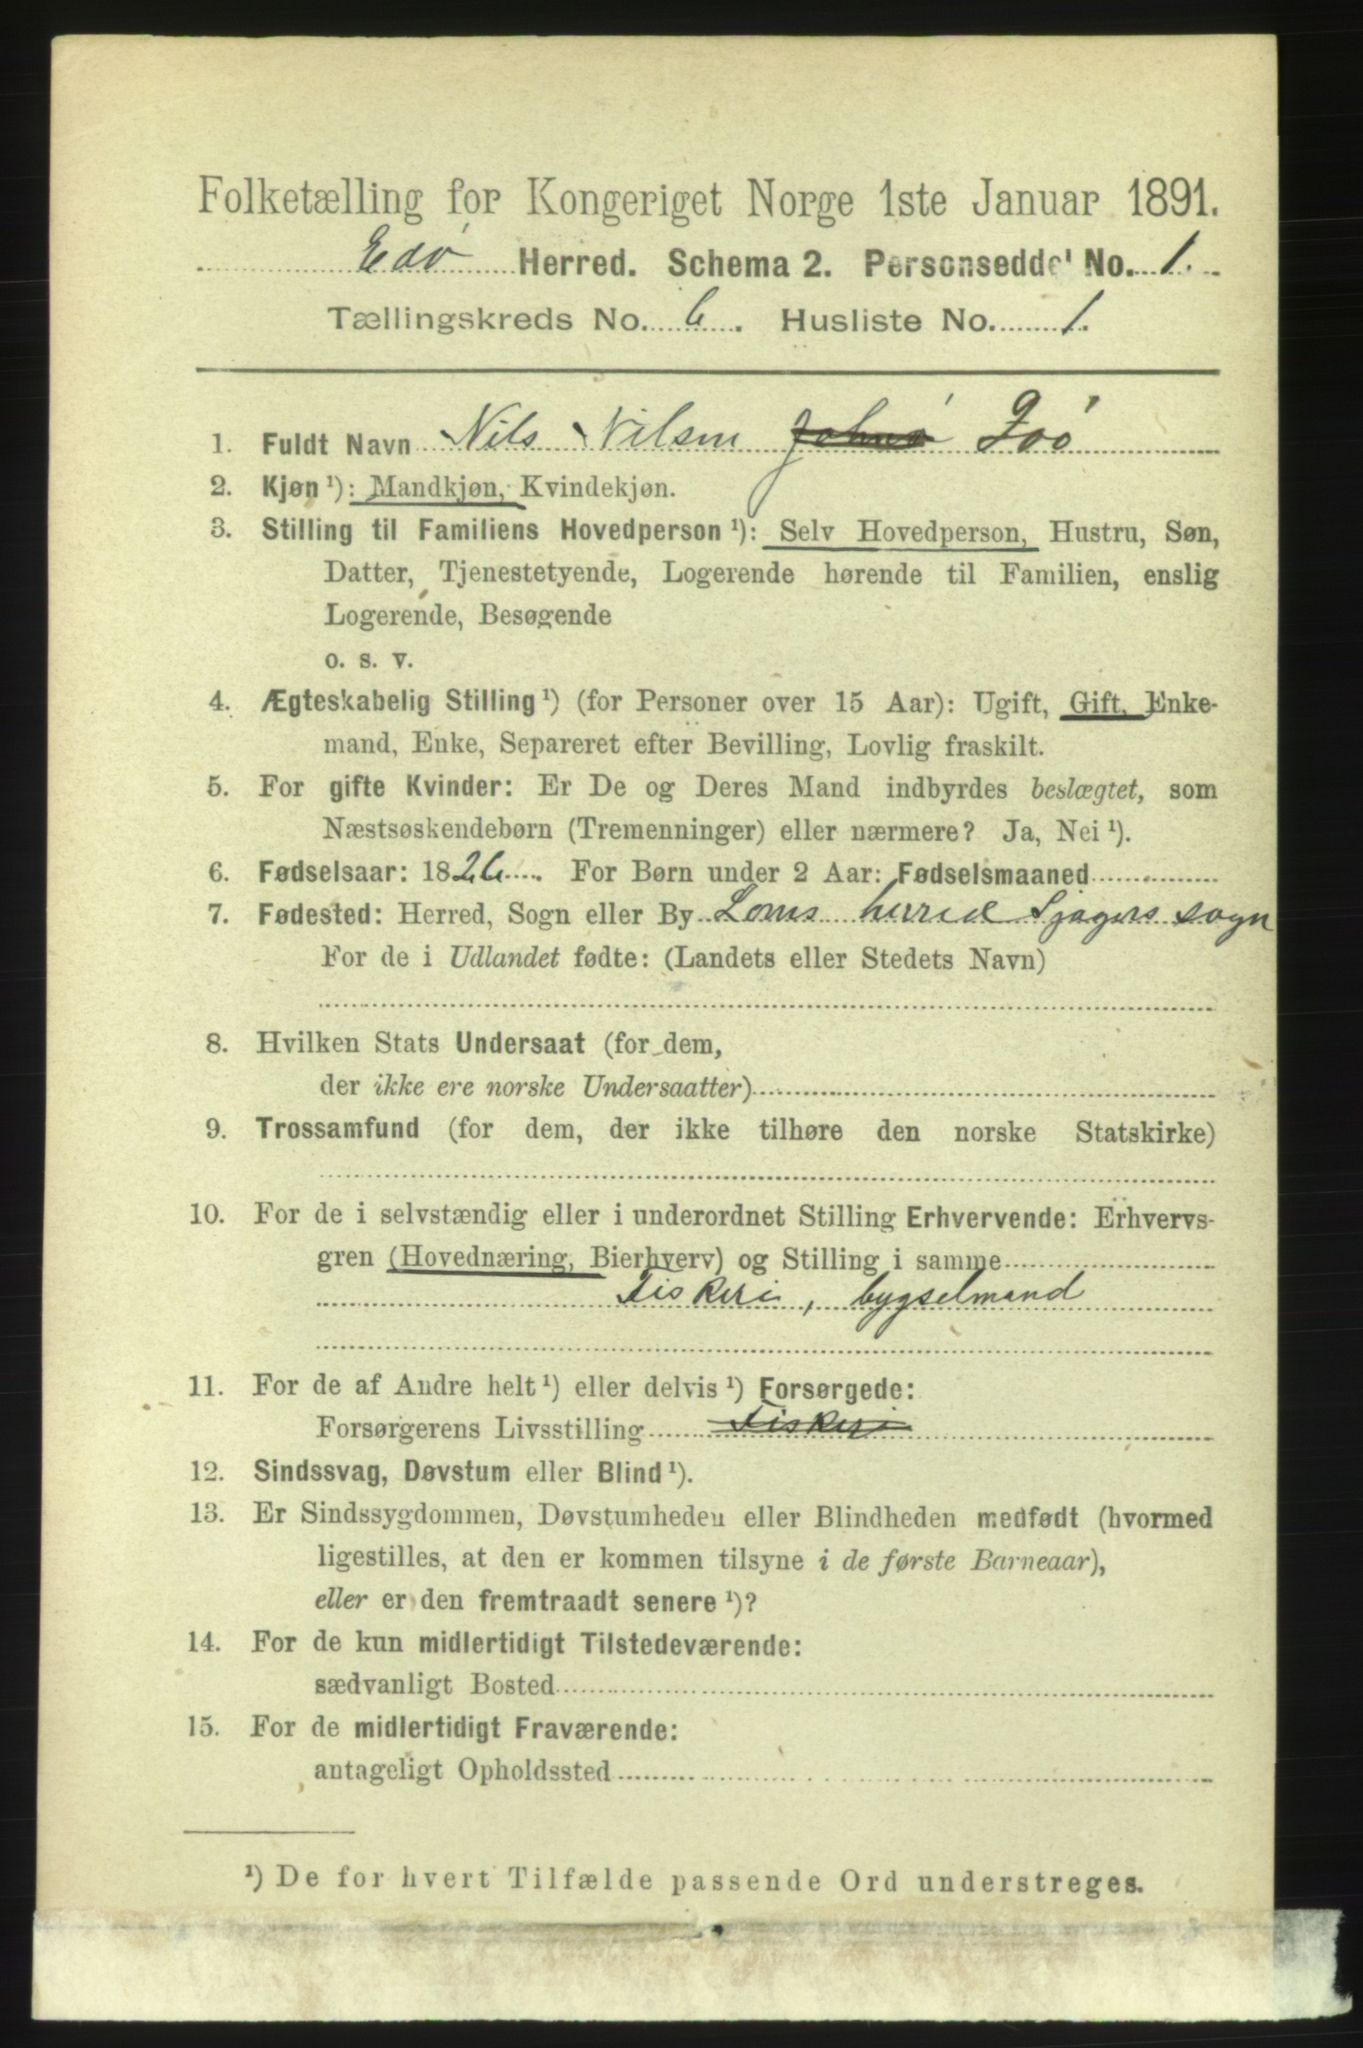 Folketælling for Kongeriget Norge 1ste Januar 1891.
Edø Herred. Schema 2. Personseddel No. 1.
Tællingskreds No. 6. Husliste No. 1.
1. Fuldt Navn Nils Nilsen Johnø
2. Kjøn ¹): Mandkjøn, Kvindekjøn.
3. Stilling til Familiens Hovedperson ¹): Selv Hovedperson, Hustru, Søn,
Datter, Tjenestetyende, Logerende hørende til Familien, enslig
Logerende, Besøgende
o. s. v.
4. Ægteskabelig Stilling ¹) (for Personer over 15 Aar): Ugift, Gift, Enke-
mand, Enke, Separeret efter Bevilling, Lovlig fraskilt.
5. For gifte Kvinder: Er De og Deres Mand indbyrdes beslægtet, som
Næstsøskendebørn (Tremenninger) eller nærmere? Ja, Nei ¹).
6. Fødselsaar: 1826. For Børn under 2 Aar: Fødselsmaaned
7. Fødested: Herred, Sogn eller By Loms herred sogn
For de i Udlandet fødte: (Landets eller Stedets Navn)
8. Hvilken Stats Undersaat (for dem,
der ikke ere norske Undersaatter)
9. Trossamfund (for dem, der ikke tilhøre den norske Statskirke)
10. For de i selvstændig eller i underordnet Stilling Erhvervende: Erhvervs-
gren (Hovednæring, Bierhverv) og Stilling i samme
Fiskeri, bygselmand
11. For de af Andre helt ¹) eller delvis ¹) Forsørgede:
Forsørgerens Livsstilling Fiskeri
12. Sindssvag, Døvstum eller Blind ¹).
13. Er Sindssygdommen, Døvstumheden eller Blindheden medfødt (hvormed
ligestilles, at den er kommen tilsyne i de første Barneaar),
eller er den fremtraadt senere ¹)?
14. For de kun midlertidigt Tilstedeværende:
sædvanligt Bosted
15. For de midlertidigt Fraværende:
antageligt Opholdssted
¹) De for hvert Tilfælde passende Ord understreges.